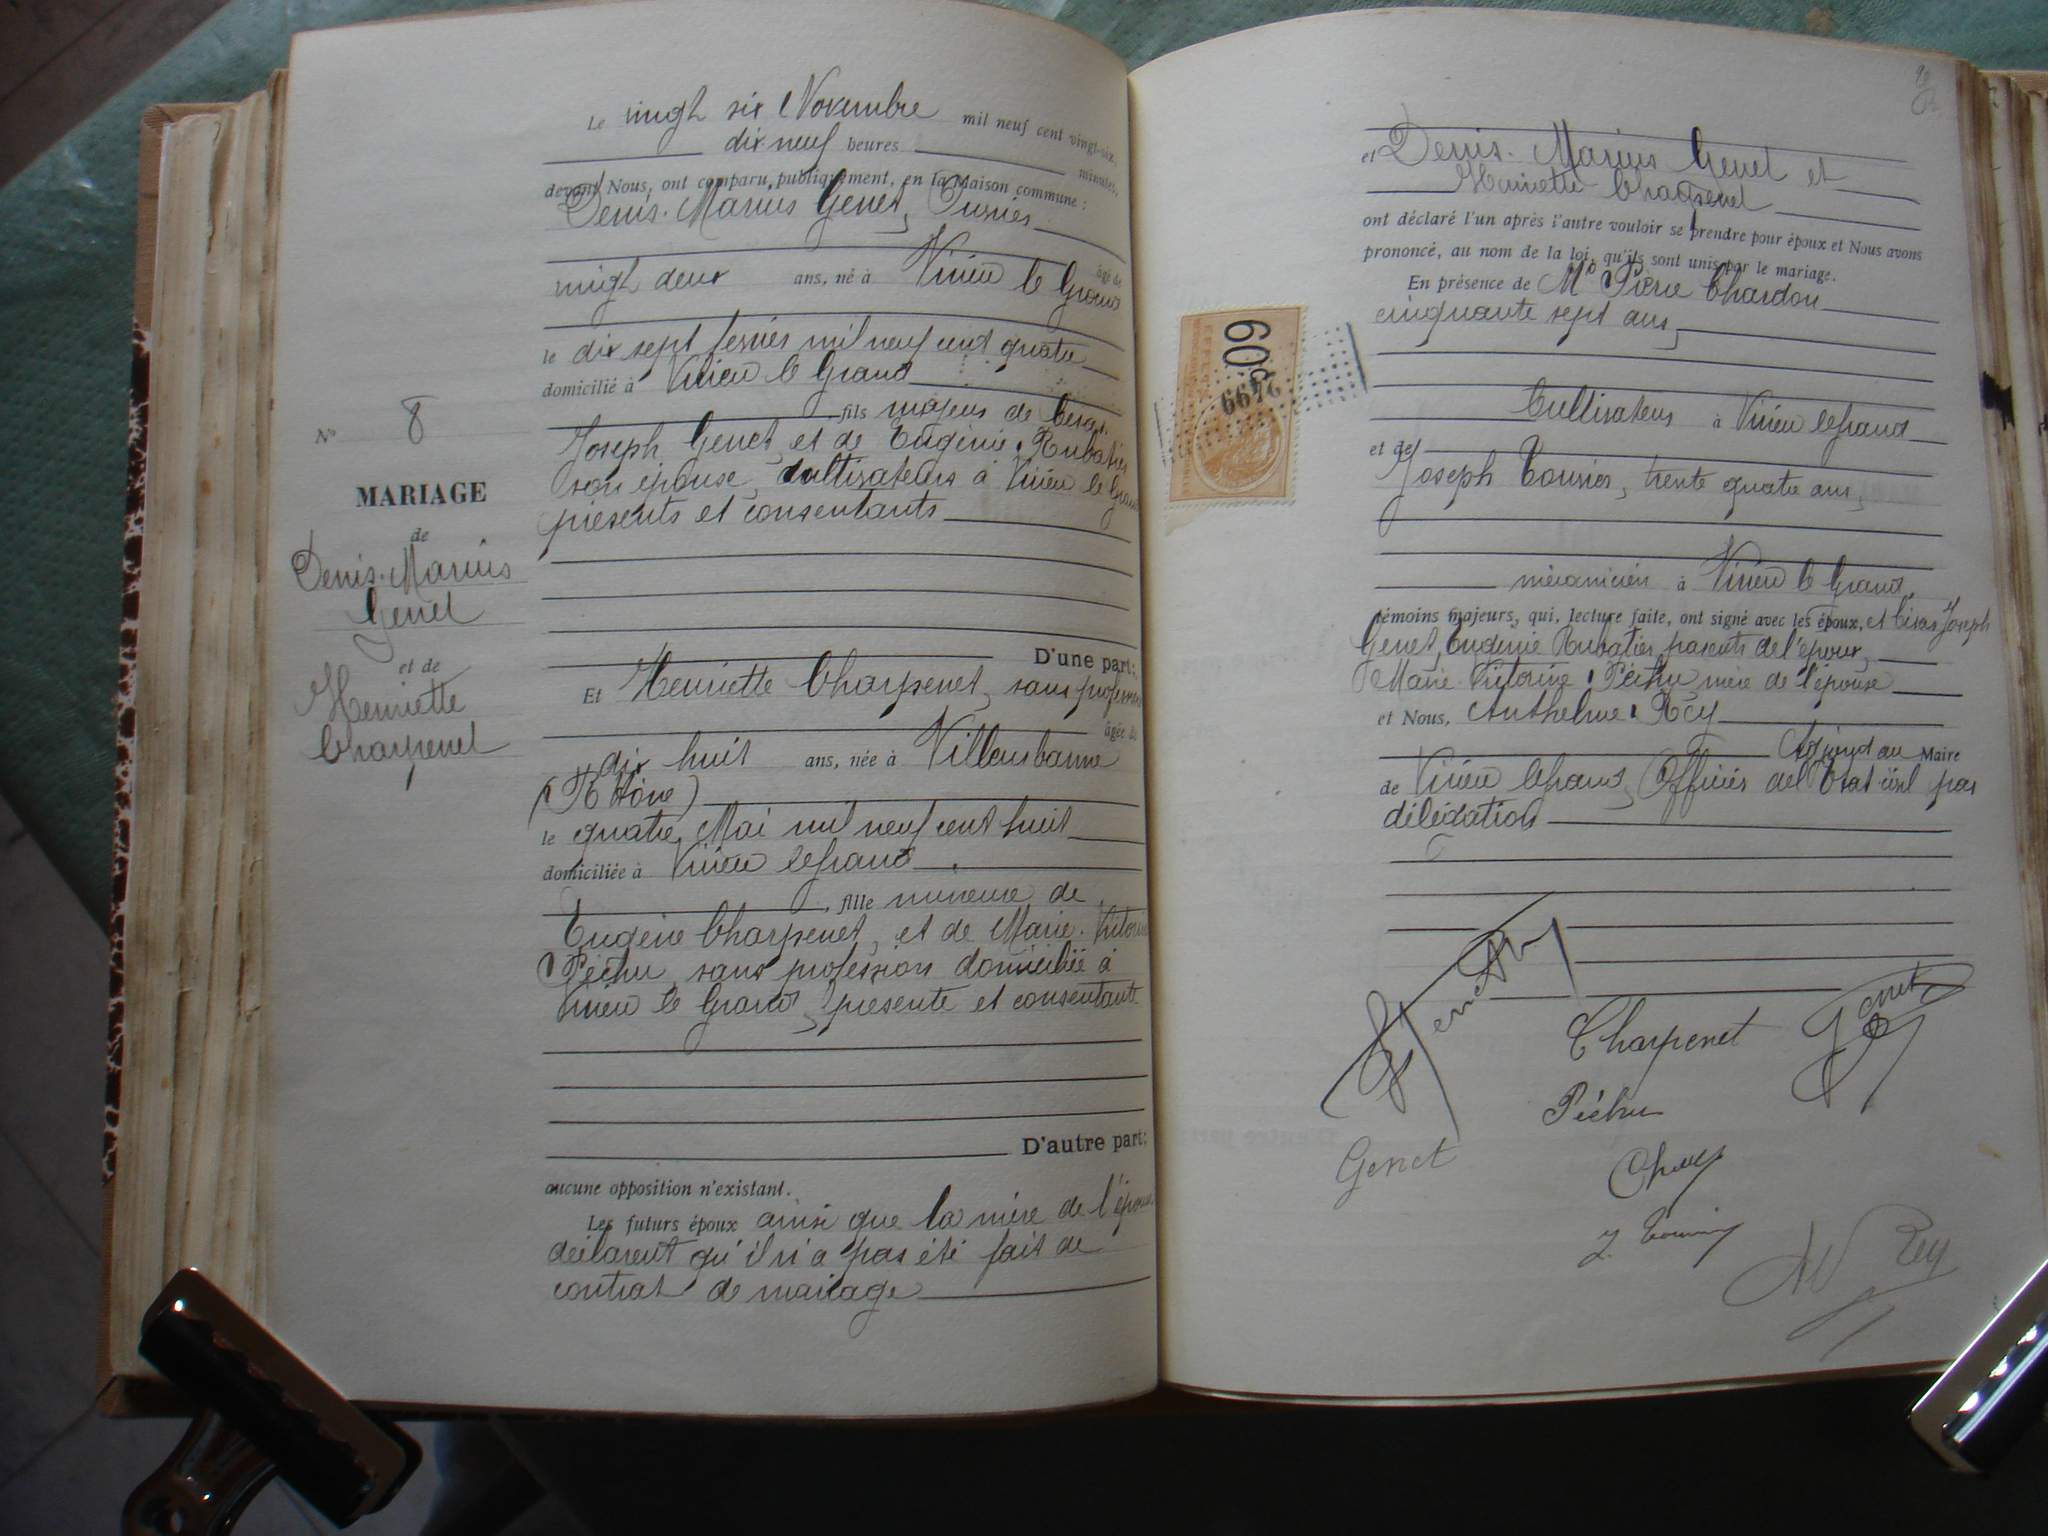 Nº 8
MARIAGE
de
Denis-Marius
Genet
et de
Henriette
Charpenet
Le vingt six Novembre mil neuf cent vingt-six,
dix neuf heures minutes,
devant Nous, ont comparu publiquement, en la Maison commune :
Denis-Marius Genet,
âgé de
vingt deux ans, né à Virieu le Grand
le dix sept février mil neuf cent quatre
domicilié à Virieu le Grand
fils majeur de César
Joseph Genet, et de Eugénie Rubatier
son épouse, cultivateurs à Virieu le Grand
présents et consentants
D'une part:
Et Henriette Charpenet, sans profession
âgée de
dix huit ans, née à Villeurbanne
(Rhône)
le quatre Mai mil neuf cent huit
domiciliée à Virieu le grand
fille mineure de
Eugène Charpenet, et de Marie-Victorine
Péchu, sans profession domiciliée à
Virieu le Grand, présente et consentante
D'autre part:
aucune opposition n'existant.
Les futurs époux ainsi que la mère de l'épouse
déclarent qu'il n'a pas été fait de
contrat de mariage
et Denis-Marius Genet et
Henriette Charpenet
ont déclaré l'un après l'autre vouloir se prendre pour époux et Nous avons
prononcé, au nom de la loi, qu'ils sont unis par le mariage.
En présence de Mr Pierre Chardon
cinquante sept ans,
Cultivateur à Virieu le grand
et de
Joseph Tournier, trente quatre ans,
mécanicien à Virieu le Grand,
témoins majeurs, qui, lecture faite, ont signé avec les époux, et César Joseph
Genet, Eugénie Rubatier parents de l'époux,
Marie Victorine Péchu, mère de l'épouse
et Nous, Anthelme Rey
Adjoint au Maire
de Virieu le grand, Officier de l'Etat civil par
délégation
60c
2499
Charpenet
Genet
Péchu
Genet
Rey